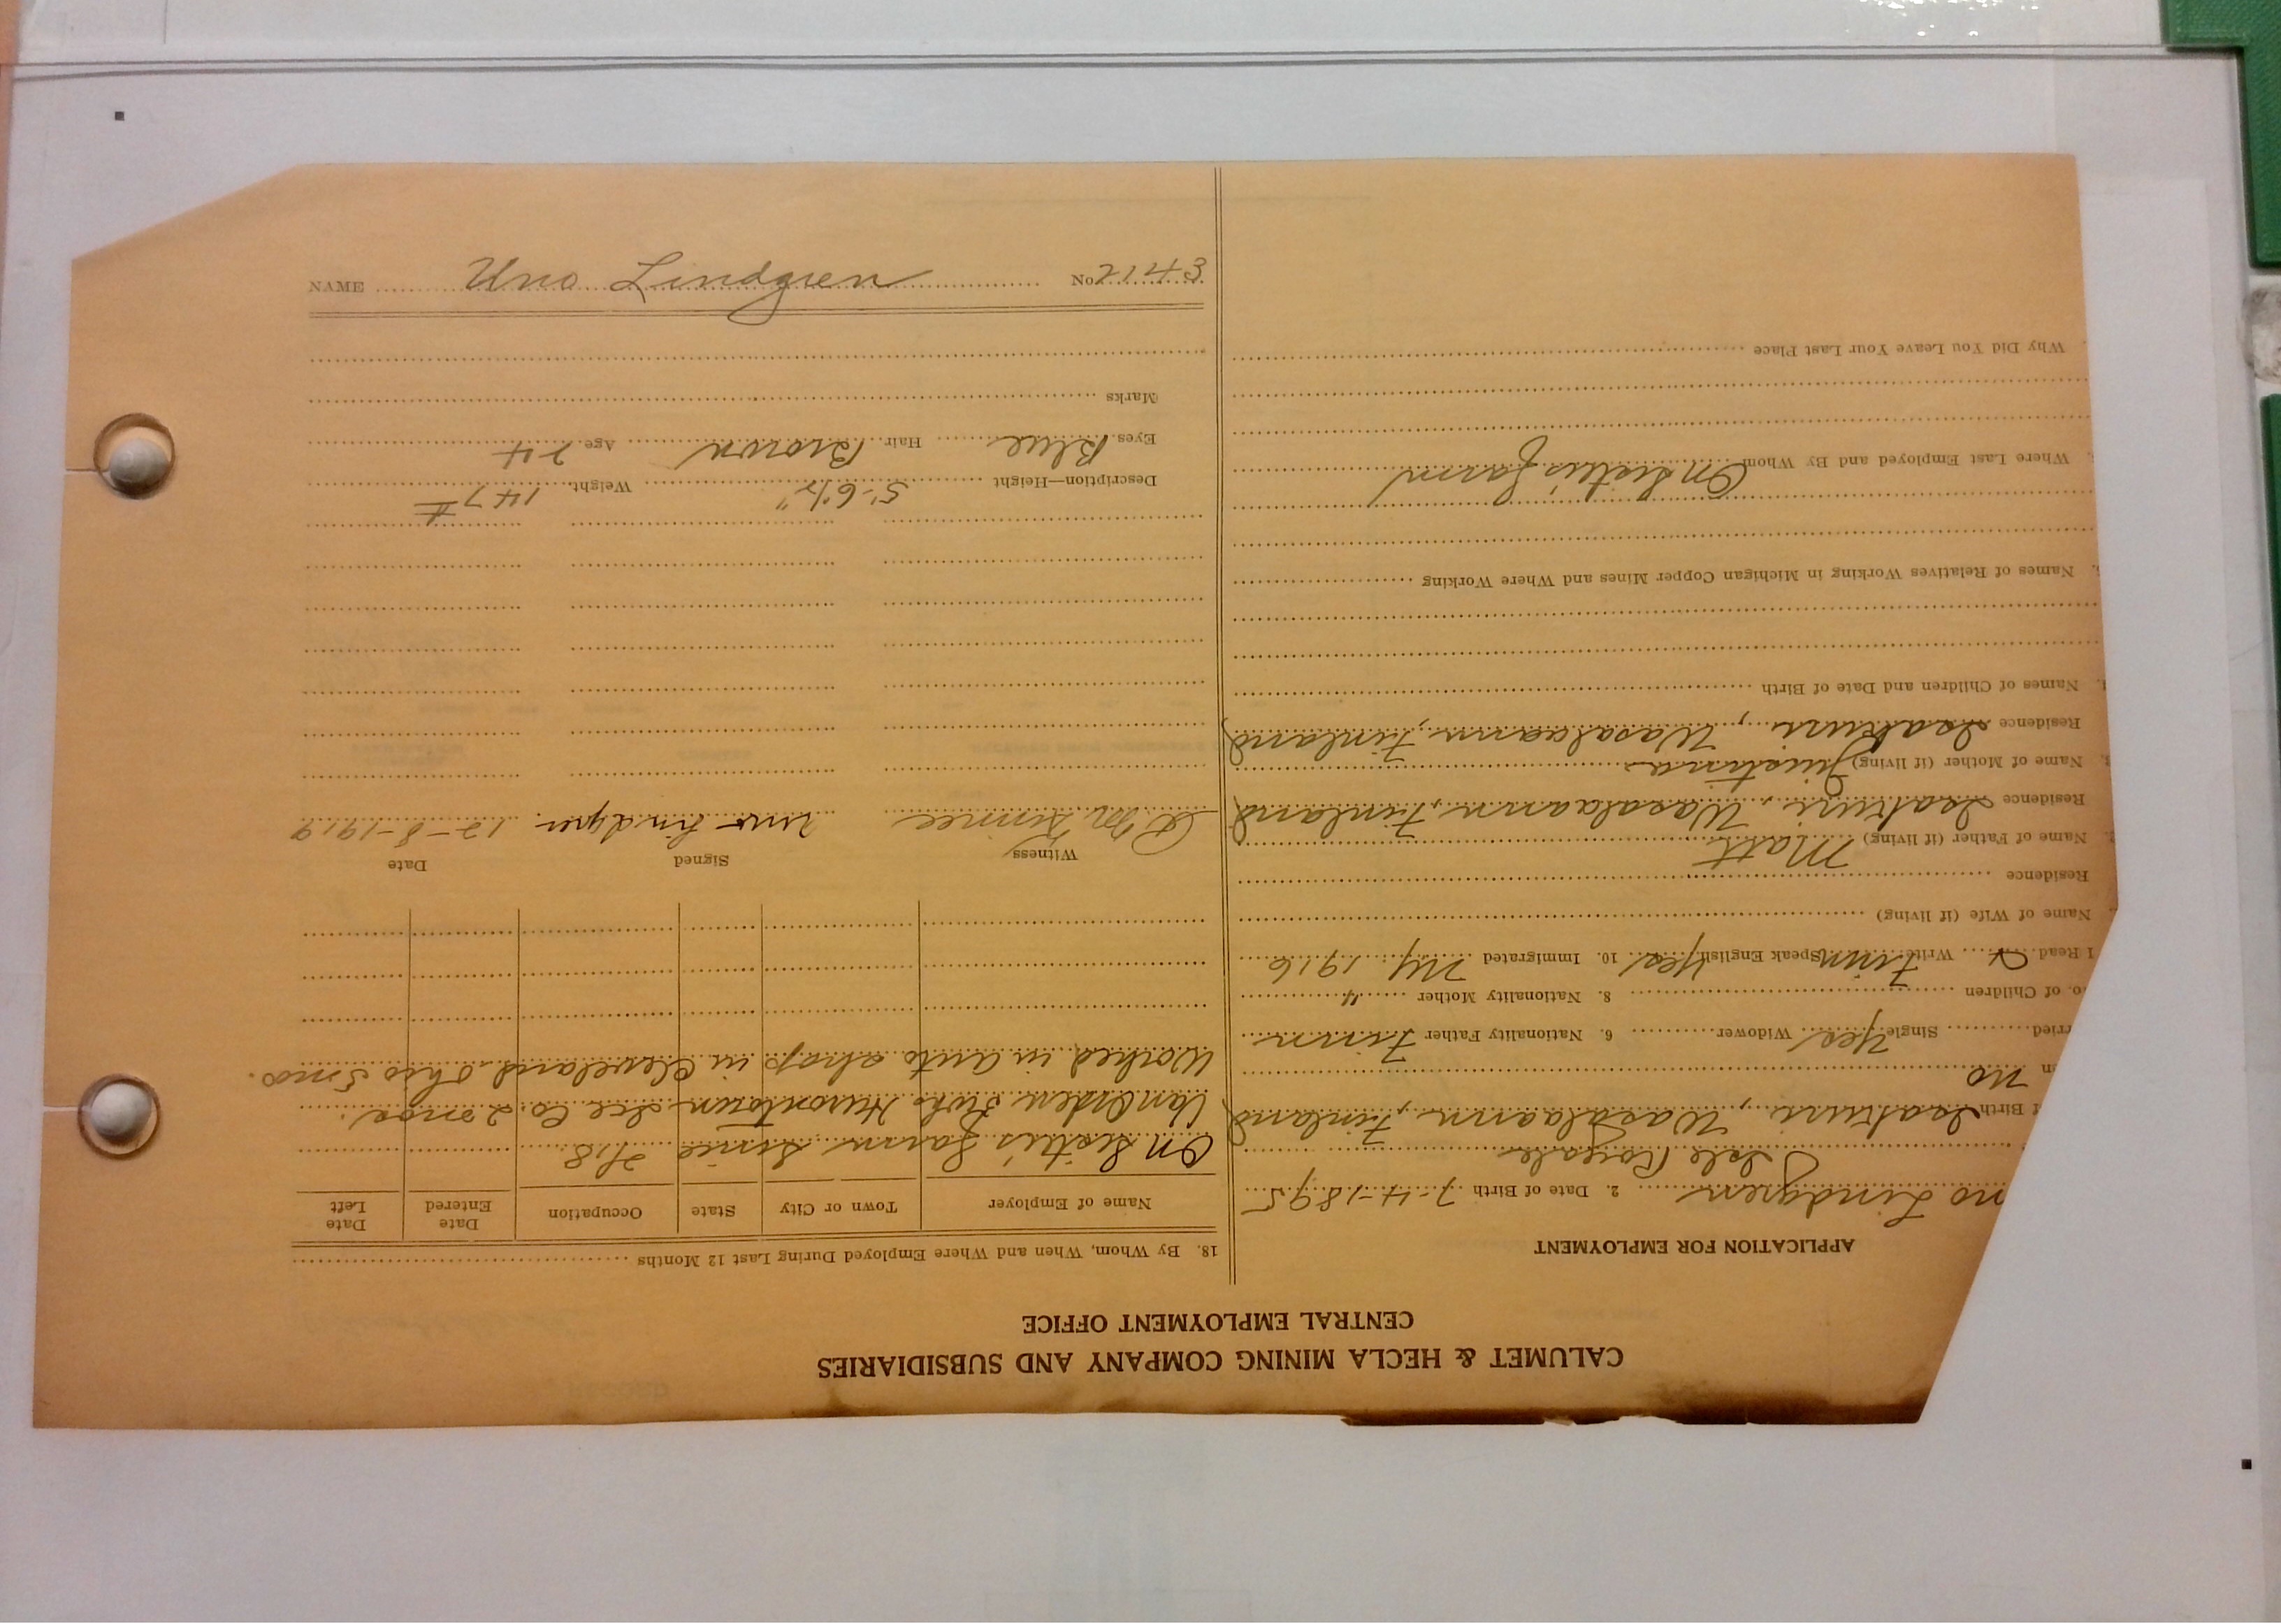 CALUMET & HECLA MINING COMPANY AND SUBSIDIARIES
CENTRAL EMPLOYMENT OFFICE
APPLICATION FOR EMPLOYMENT
no Lindgren 2. Date of Birth 7-4-1895
Isle Royale
f Birth Isokuri, Wasalaann, Finland
en no
rried Single Yes Widower 6. Nationality Father Finn
o. of Children 8. Nationality Mother "
I Read Write Finn Speak English Yes 10. Immigrated NY. 1916
Name of Wife (if living)
Residence
Name of Father (if living) Matt
Residence Isokuri, Wasalaann, Finland
Name of Mother (if living) Justina
Residence Isokuri, Wasalaann, Finland
Names of Children and Date of Birth
Names of Relatives Working in Michigan Copper Mines and Where Working
Where Last Employed and By Whom On farm
Why Did You Leave Your Last Place
18. By Whom, When and Where Employed During Last 12 Months
Name of Employer Town or City State Occupation Date Entered Date Left
On farm since
Van Orden Hurontown Ice Co. 2 mos.
Worked in auto shop in Cleveland Ohio 5 mos.
Witness Signed Date
Uno Lindgren 12-8-1919
Description—Height 5'-6½" Weight 147 #
Eyes Blue Hair Brown Age 24
Marks
NAME Uno Lindgren No 2143